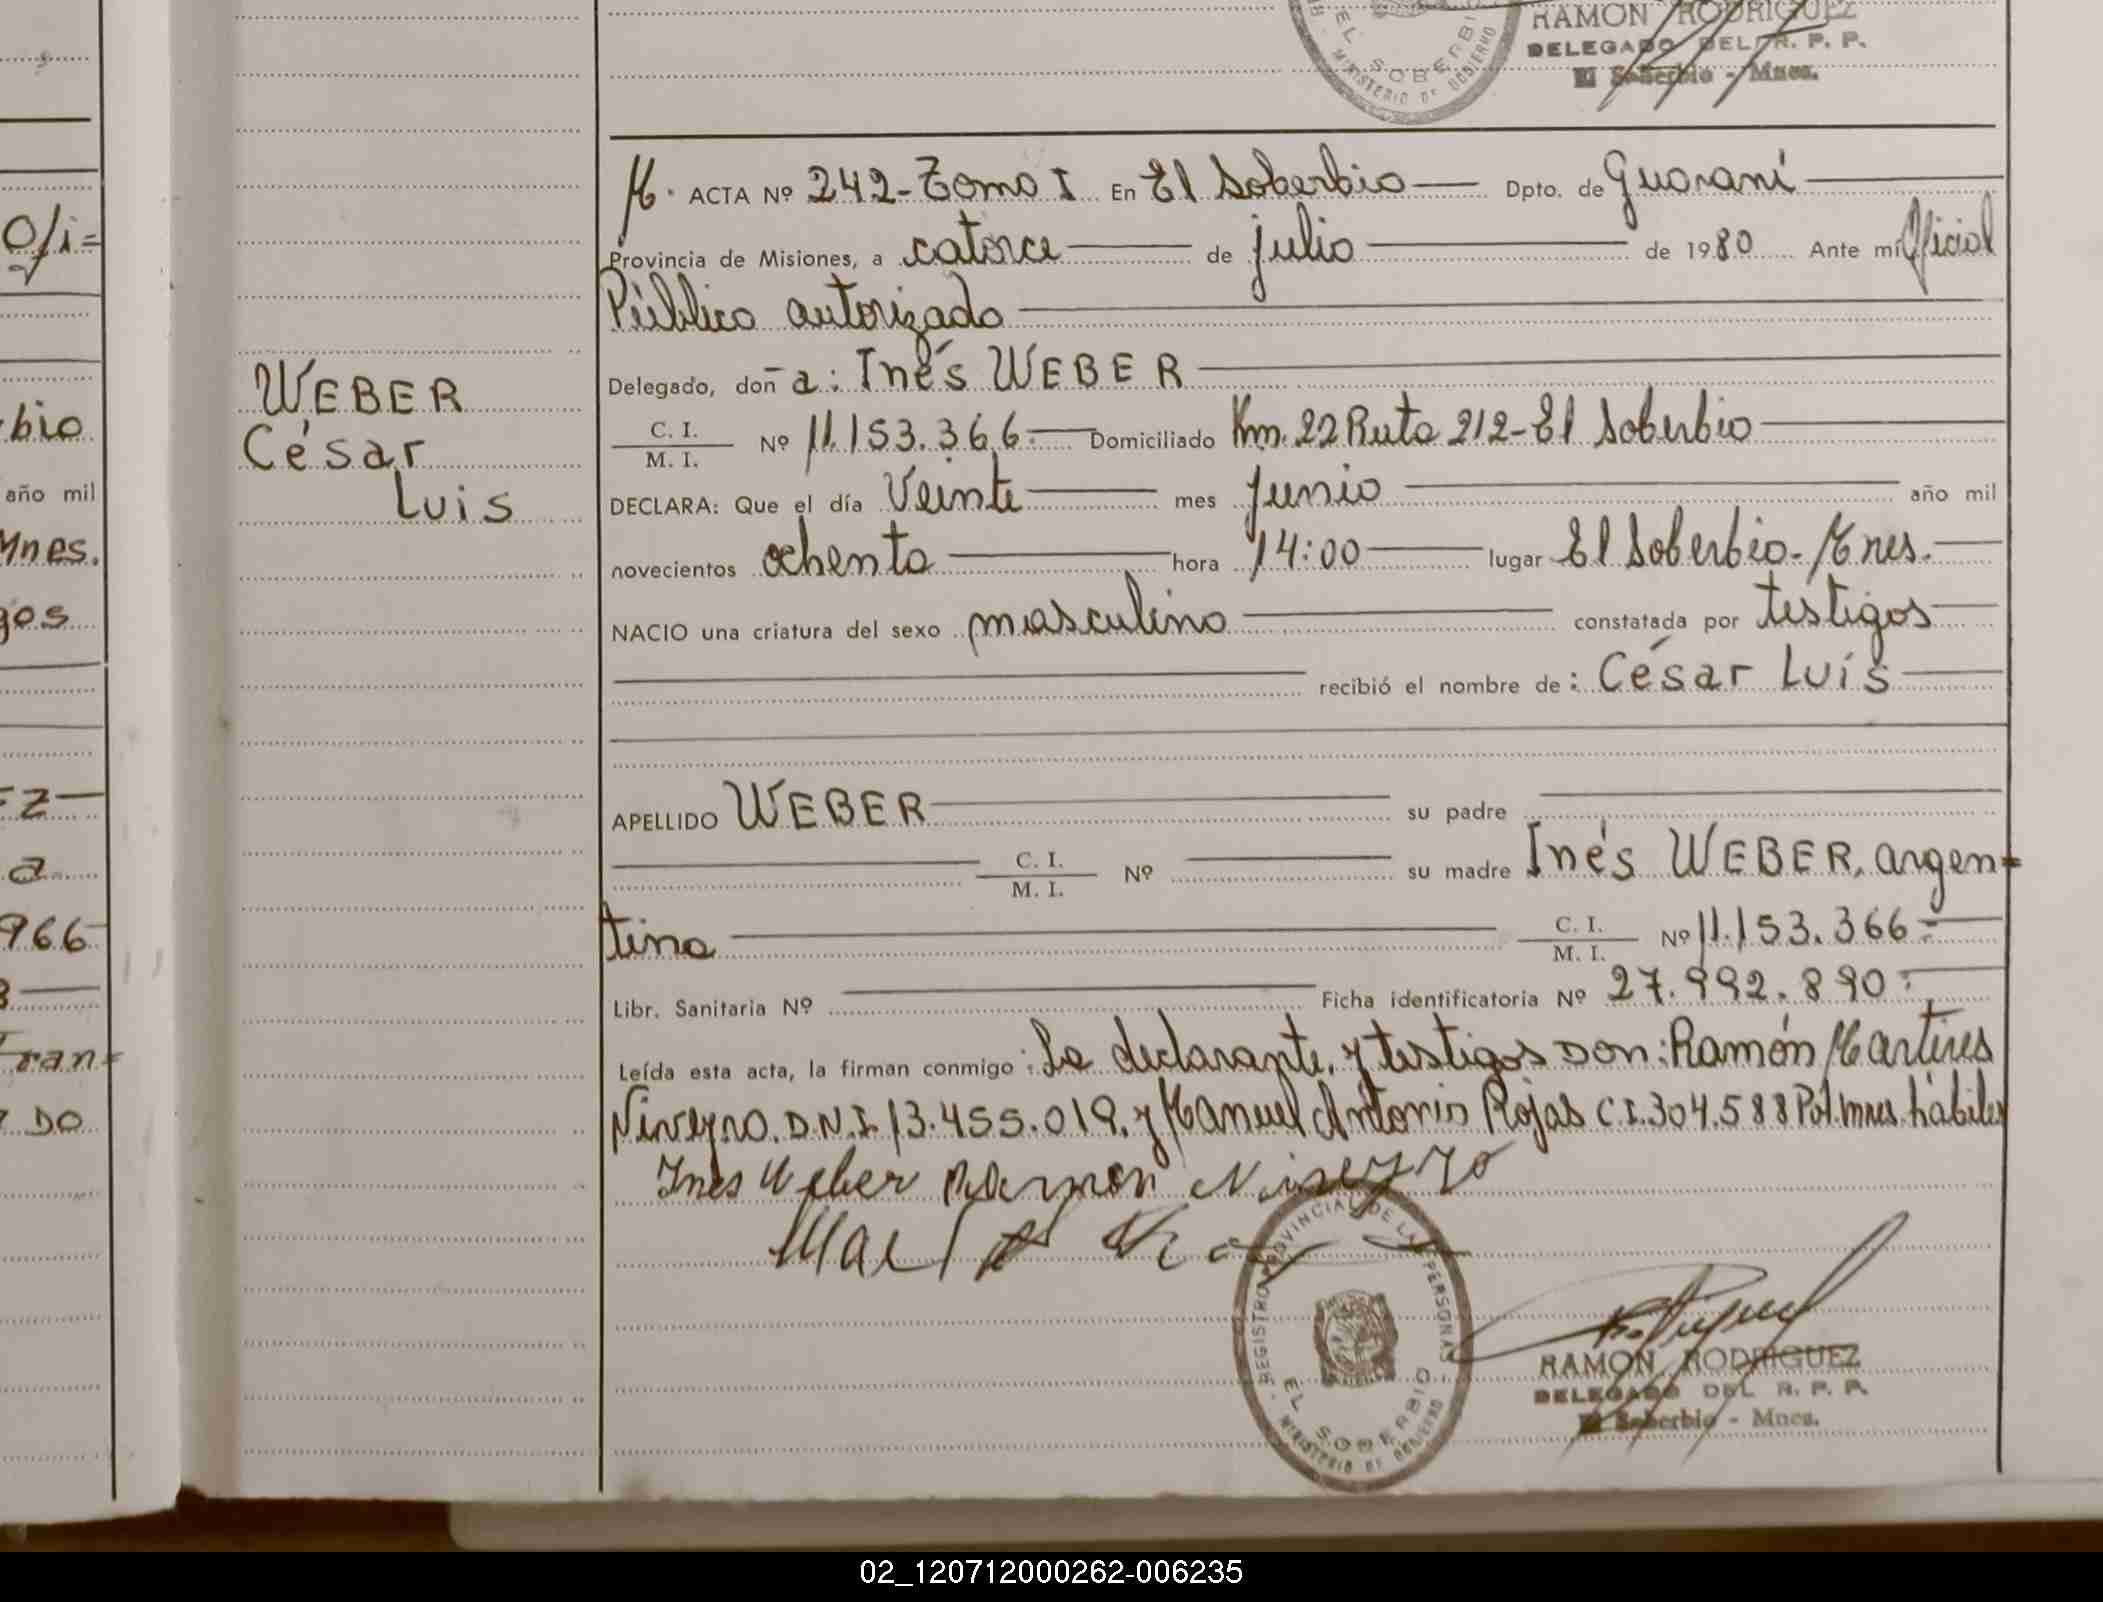 RAMON RODRIGUEZ
DELEGADO DEL R. P. P.
El Soberbio - Mnes.
EL SOBERBIO
MINISTERIO DE GOBIERNO
Ofi=
bio
año mil
Mnes.
gos
EZ
a
966
Fran=
DO
WEBER
César
Luis
M. ACTA Nº 242-Tomo I En El Soberbio Dpto. de Guaraní
Provincia de Misiones, a catorce de julio de 1980 Ante mí Oficial
Público autorizado
Delegado, doña: Inés WEBER
C. I.
M. I. Nº 11.153.366. Domiciliado Km. 22 Ruta 212-El Soberbio
DECLARA: Que el día Veinte mes Junio año mil
novecientos ochenta hora 14:00 lugar El Soberbio-Mnes.
NACIO una criatura del sexo masculino constatada por testigos
recibió el nombre de: César Luís
APELLIDO WEBER su padre
C. I.
M. I. Nº su madre Inés WEBER, argen=
tina C. I.
M. I. Nº 11.153.366=
Libr. Sanitaria Nº Ficha identificatoria Nº 27.992.890:
Leída esta acta, la firman conmigo: La declarante, y testigos Don: Ramón Martires
Niveyro. D.N.I. 13.455.019, y Manuel Antonio Rojas C.I. 304.588 Pol. mnes. hábiles
Inés Weber Ramon Niveyro
REGISTRO PROVINCIAL DE LAS PERSONAS
EL SOBERBIO
MINISTERIO DE GOBIERNO
RAMON RODRIGUEZ
DELEGADO DEL R. P. P.
El Soberbio - Mnes.
02_120712000262-006235